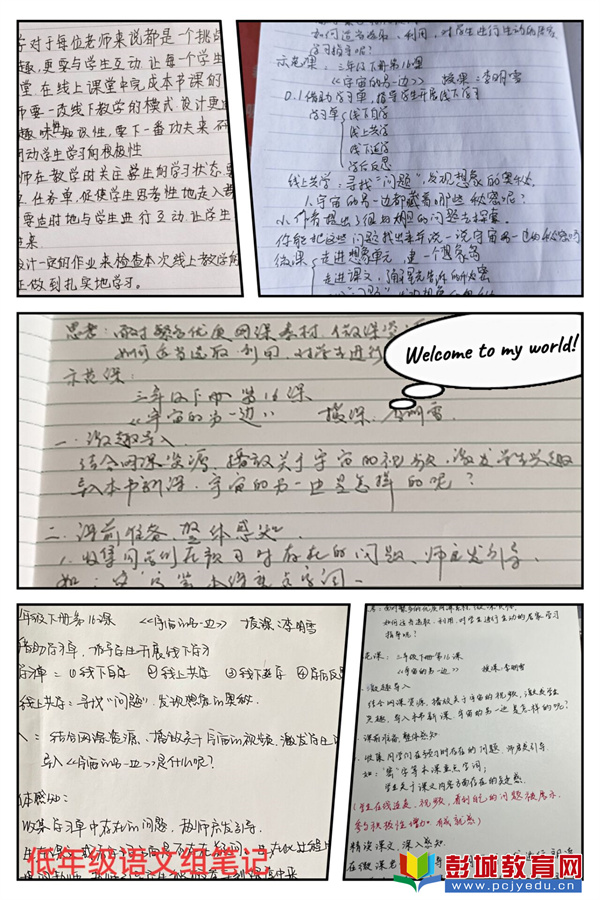 学对于每位老师来说都是一个挑战
趣,更要与学生互动,让每个学生
堂,在线上课堂中完成本节课的
师要一改线下教学的模式,设计更
趣味性、知识性,要下一番功夫来研
调动学生学习的积极性
师在教学时关注学生的学习状态,要
任务单,促使学生思考性地走入
要适时地与学生进行互动,让学生
来.
设计一定的作业来检查本次线上教学的
正做到扎实地学习。
如何适当选取、利用,对学生进行生动的居家
学习指导呢?
示范课:三年级下册第16课
《宇宙的另一边》 授课:李明雪
0.1借助学习单,指导学生开展线下学习
学习单
线下自学
线上共学
线下延学
学后反思
线上共学:寻找“问题”,发现想象的奥秘.
1.宇宙的另一边都藏着哪些秘密呢?
小作者提出了很多大胆的问题去探索.
你能把这些问题找出来并说一说宇宙另一边的秘密吗
微课
走进想象单元,建一个想象岛
走进课文,
思考:面对繁多优质网课素材、微课资源
如何适当选取、利用、对学生进行
Welcome to my world!
示范课:
三年级下册第16课
《宇宙的另一边》 授课:李明雪.
一.激趣导入.
结合网课资源,播放关于宇宙的视频,激发学生兴趣
导入本节新课.宇宙的另一边是怎样的呢?
二.课前准备,整体感知.
1.收集同学们在预习时存在的问题、师生发引导.
年级下册第16课 《宇宙的另一边》 授课:李明雪
借助学习单,指导学生开展线下学习
学习单:①线下自学 ②线上共学 ③线下延学 ④学后反思
线上共学:寻找“问题”,发现想象的奥秘.
入:结合网课资源、播放关于宇宙的视频,激发学生
导入《宇宙的另一边》是什么呢?
体感知:
收集学习单中存在的问题,教师启发引导.
如何适当选取、利用、对学生进行生动的居家学习
指导呢?
范课:三年级下册第16课
《宇宙的另一边》 授课:李明雪
激趣导入
结合网课资源,播放关于宇宙的视频,激发学生
兴趣,导入本节新课,宇宙的另一边是怎样的呢?
课前准备,整体感知
收集同学们在预习时存在的问题 师启发引导.
如:“密”字等本课重点字词;
学生关于课文内容方面存在的疑惑.
(学生在线连麦,视频,看到自己的问题被展示,
参与积极性增加,有成就感)
精读课文,深入感知
低年级语文组笔记
彭城教育网
www.pcjyedu.cn